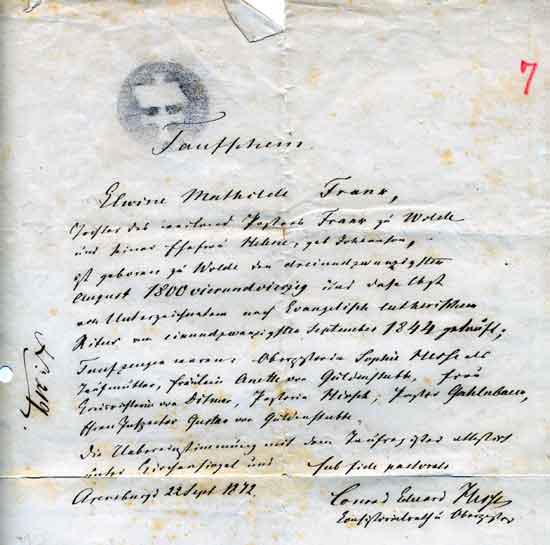 7
Taufschein.
Elwine Mathilde Frank,
Tochter des weiland Pastors Frank zu Wolde
und seiner Ehefrau Helene, geb.
ist geboren zu Wolde den dreiundzwanzigsten
August 1800 vierundvierzig und daselbst
von Unterzeichnetem nach Evangelisch lutherischem
Ritus am einundzwanzigsten September 1844 getauft;
Taufzeugen waren: Oberpastorin Sophie Hesse als
Taufmutter, Fräulein Anette von Güldenstubbe, Frau
von Ditmar, Pastorin Hirsch; Pastor
Gustav von Güldenstubbe.
Die Uebereinstimmung mit dem Taufregister attestirt
unter Kirchensiegel und sub fide pastorali
Arensburg d 22 Sept 1872.
Conrad Eduard Hesse
Consistorialrath u Oberpastor